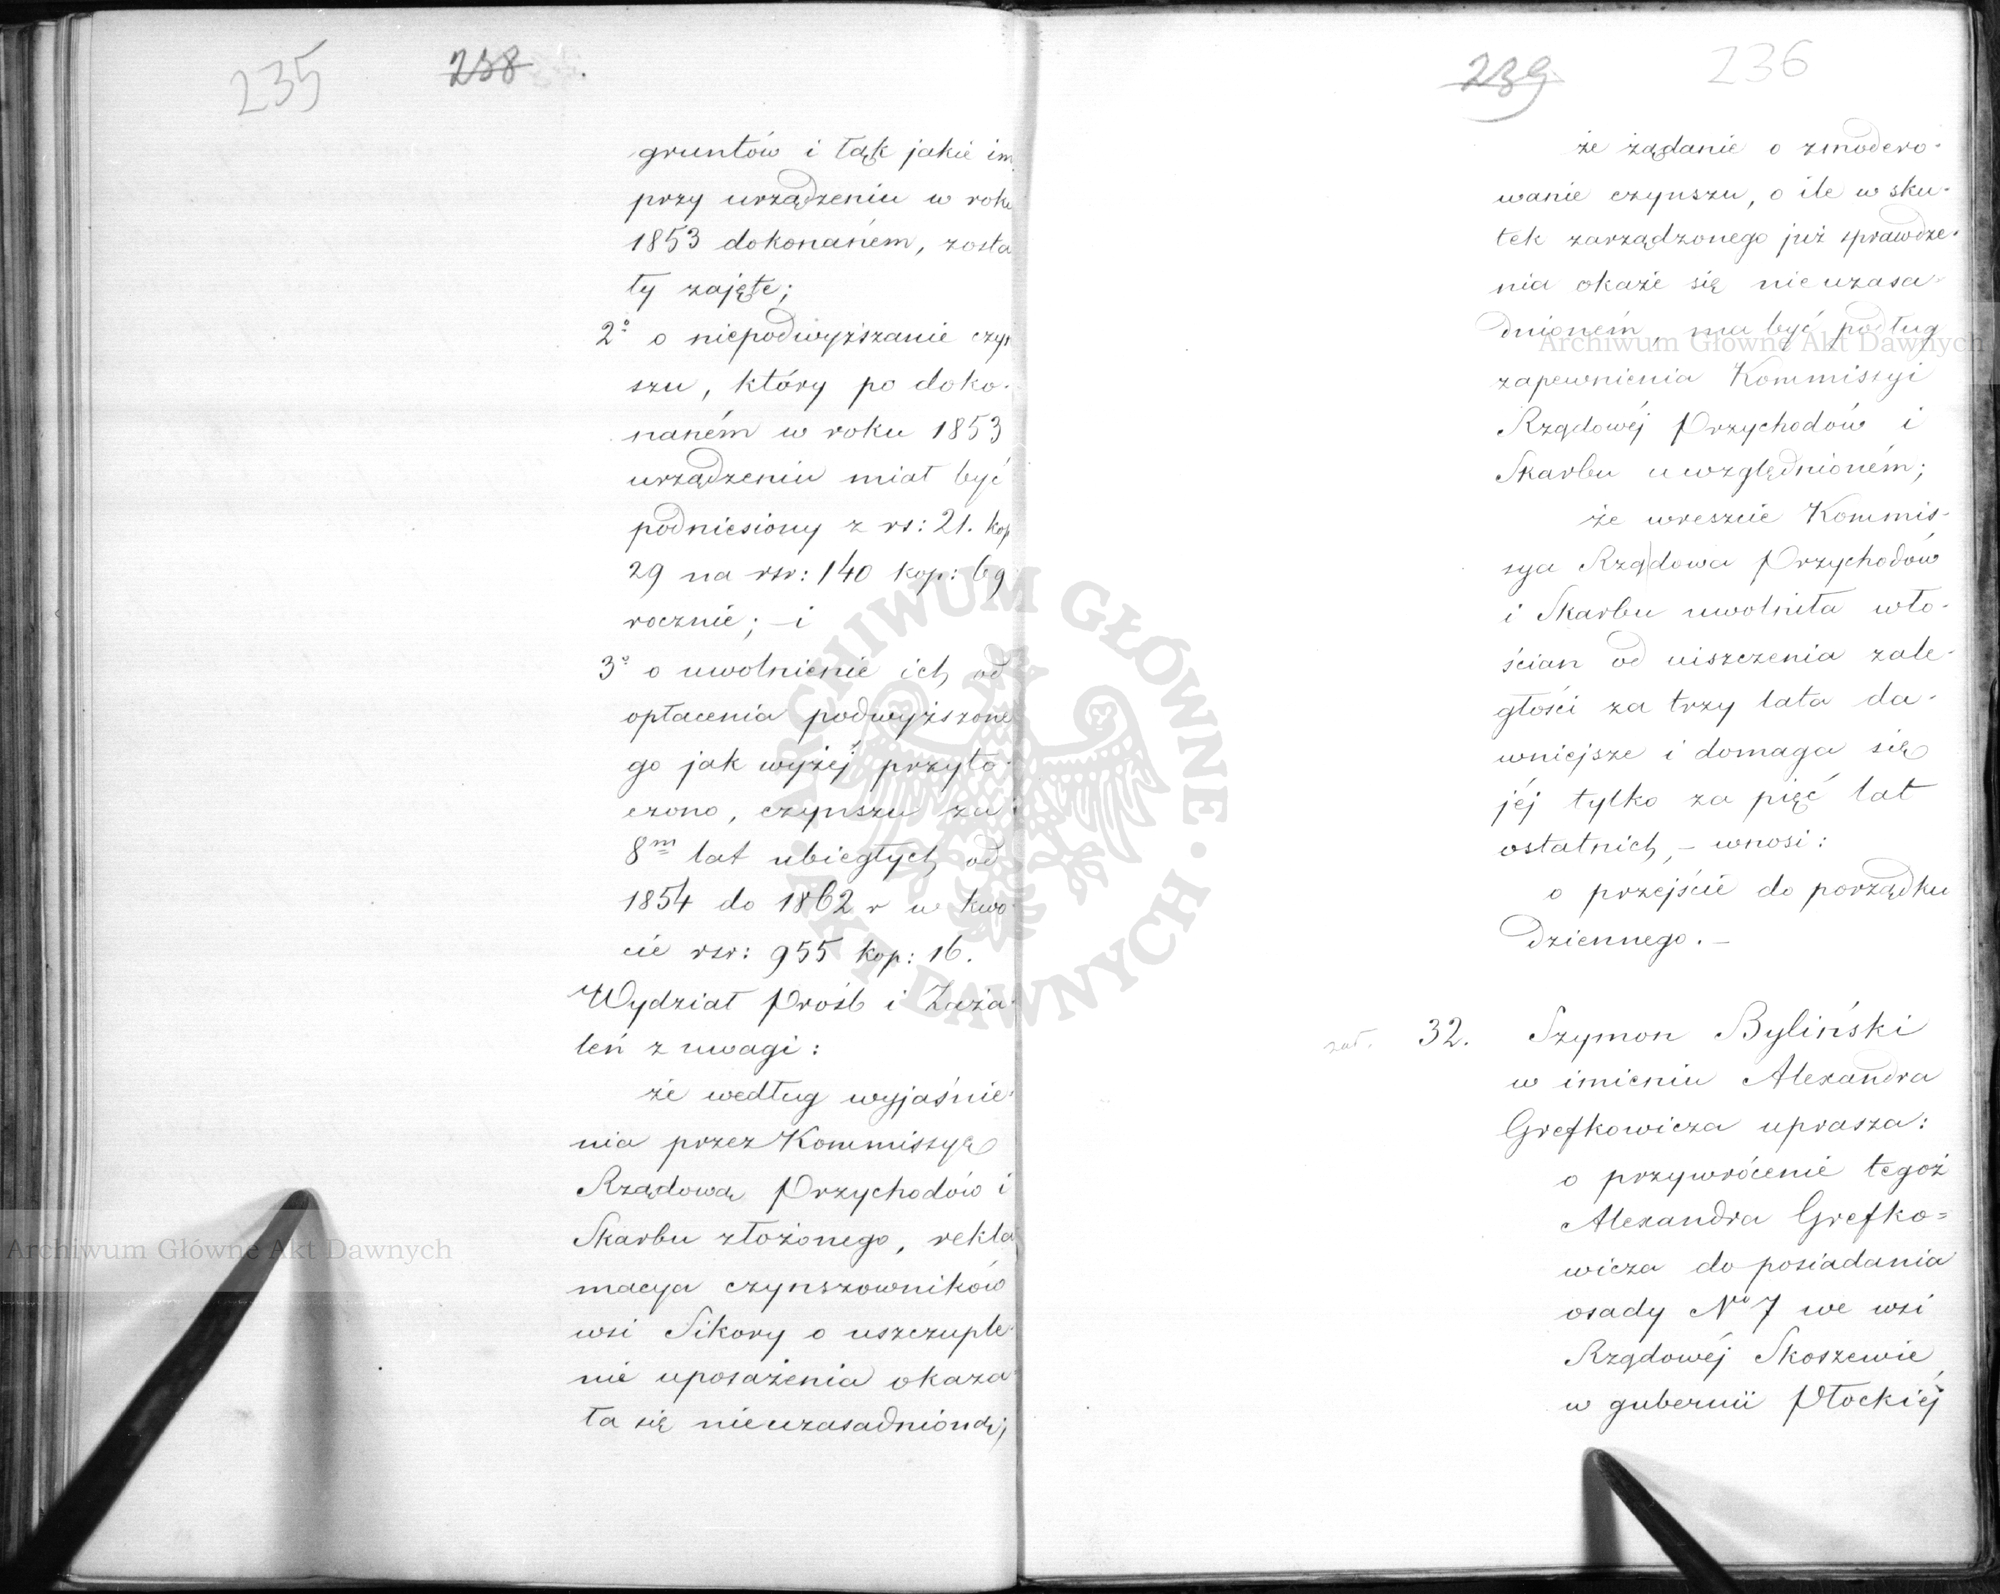 235
238
gruntów i łąk jakie im
przy urządzeniu w roku
1853 dokonaném, zosta
ły zajęte;
2° o niepodwyższanie czyn
szu, który po doko-
naném w roku 1853
urządzeniu miał być
podniesiony z rs: 21. kop
29 na rsr: 140 kop: 69
rocznie; – i
3° o uwolnienie ich od
opłacenia podwyższone
go jak wyżéj przyto-
czono, czynszu za
8m lat ubiegłych od
1854 do 1862 r w kwo-
cie rsr: 955 kop: 16.
Wydział Próśb i Zaża-
leń z uwagi:
że według wyjaśnie-
nia przez Kommissyę
Rządową Przychodów i
Skarbu złożonego, rekla
macya czynszowników
wsi Sikory o uszczuple-
nie uposażenia okaza
ła się nieuzasadnioną;
239
236
że żądanie o zmodero-
wanie czynszu, o ile w sku-
tek zarządzonego już sprawdze-
nia okaże się nie uzasa-
dnioném, ma być podług
zapewnienia Kommissyi
Rządowéj Przychodów i
Skarbu uwzględnioném;
że wreszcie Kommis-
sya Rządowa Przychodów
i Skarbu uwolniła wło-
ścian od uiszczenia zale-
głości za trzy lata da-
wniejsze i domaga się
jéj tylko za pięć lat
ostatnich, – wnosi:
o przejście do porządku
dziennego. –
zał. 32. Szymon Byliński
w imieniu Alexandra
Grefkowicza uprasza:
o przywrócenie tegoż
Alexandra Grefko=
wicza do posiadania
osady No 7 we wsi
Rządowéj Skoszewie
w gubernii Płockiéj
Archiwum Główne Akt Dawnych
Archiwum Główne Akt Dawnych
ARCHIWUM GŁÓWNE · AKT DAWNYCH ·